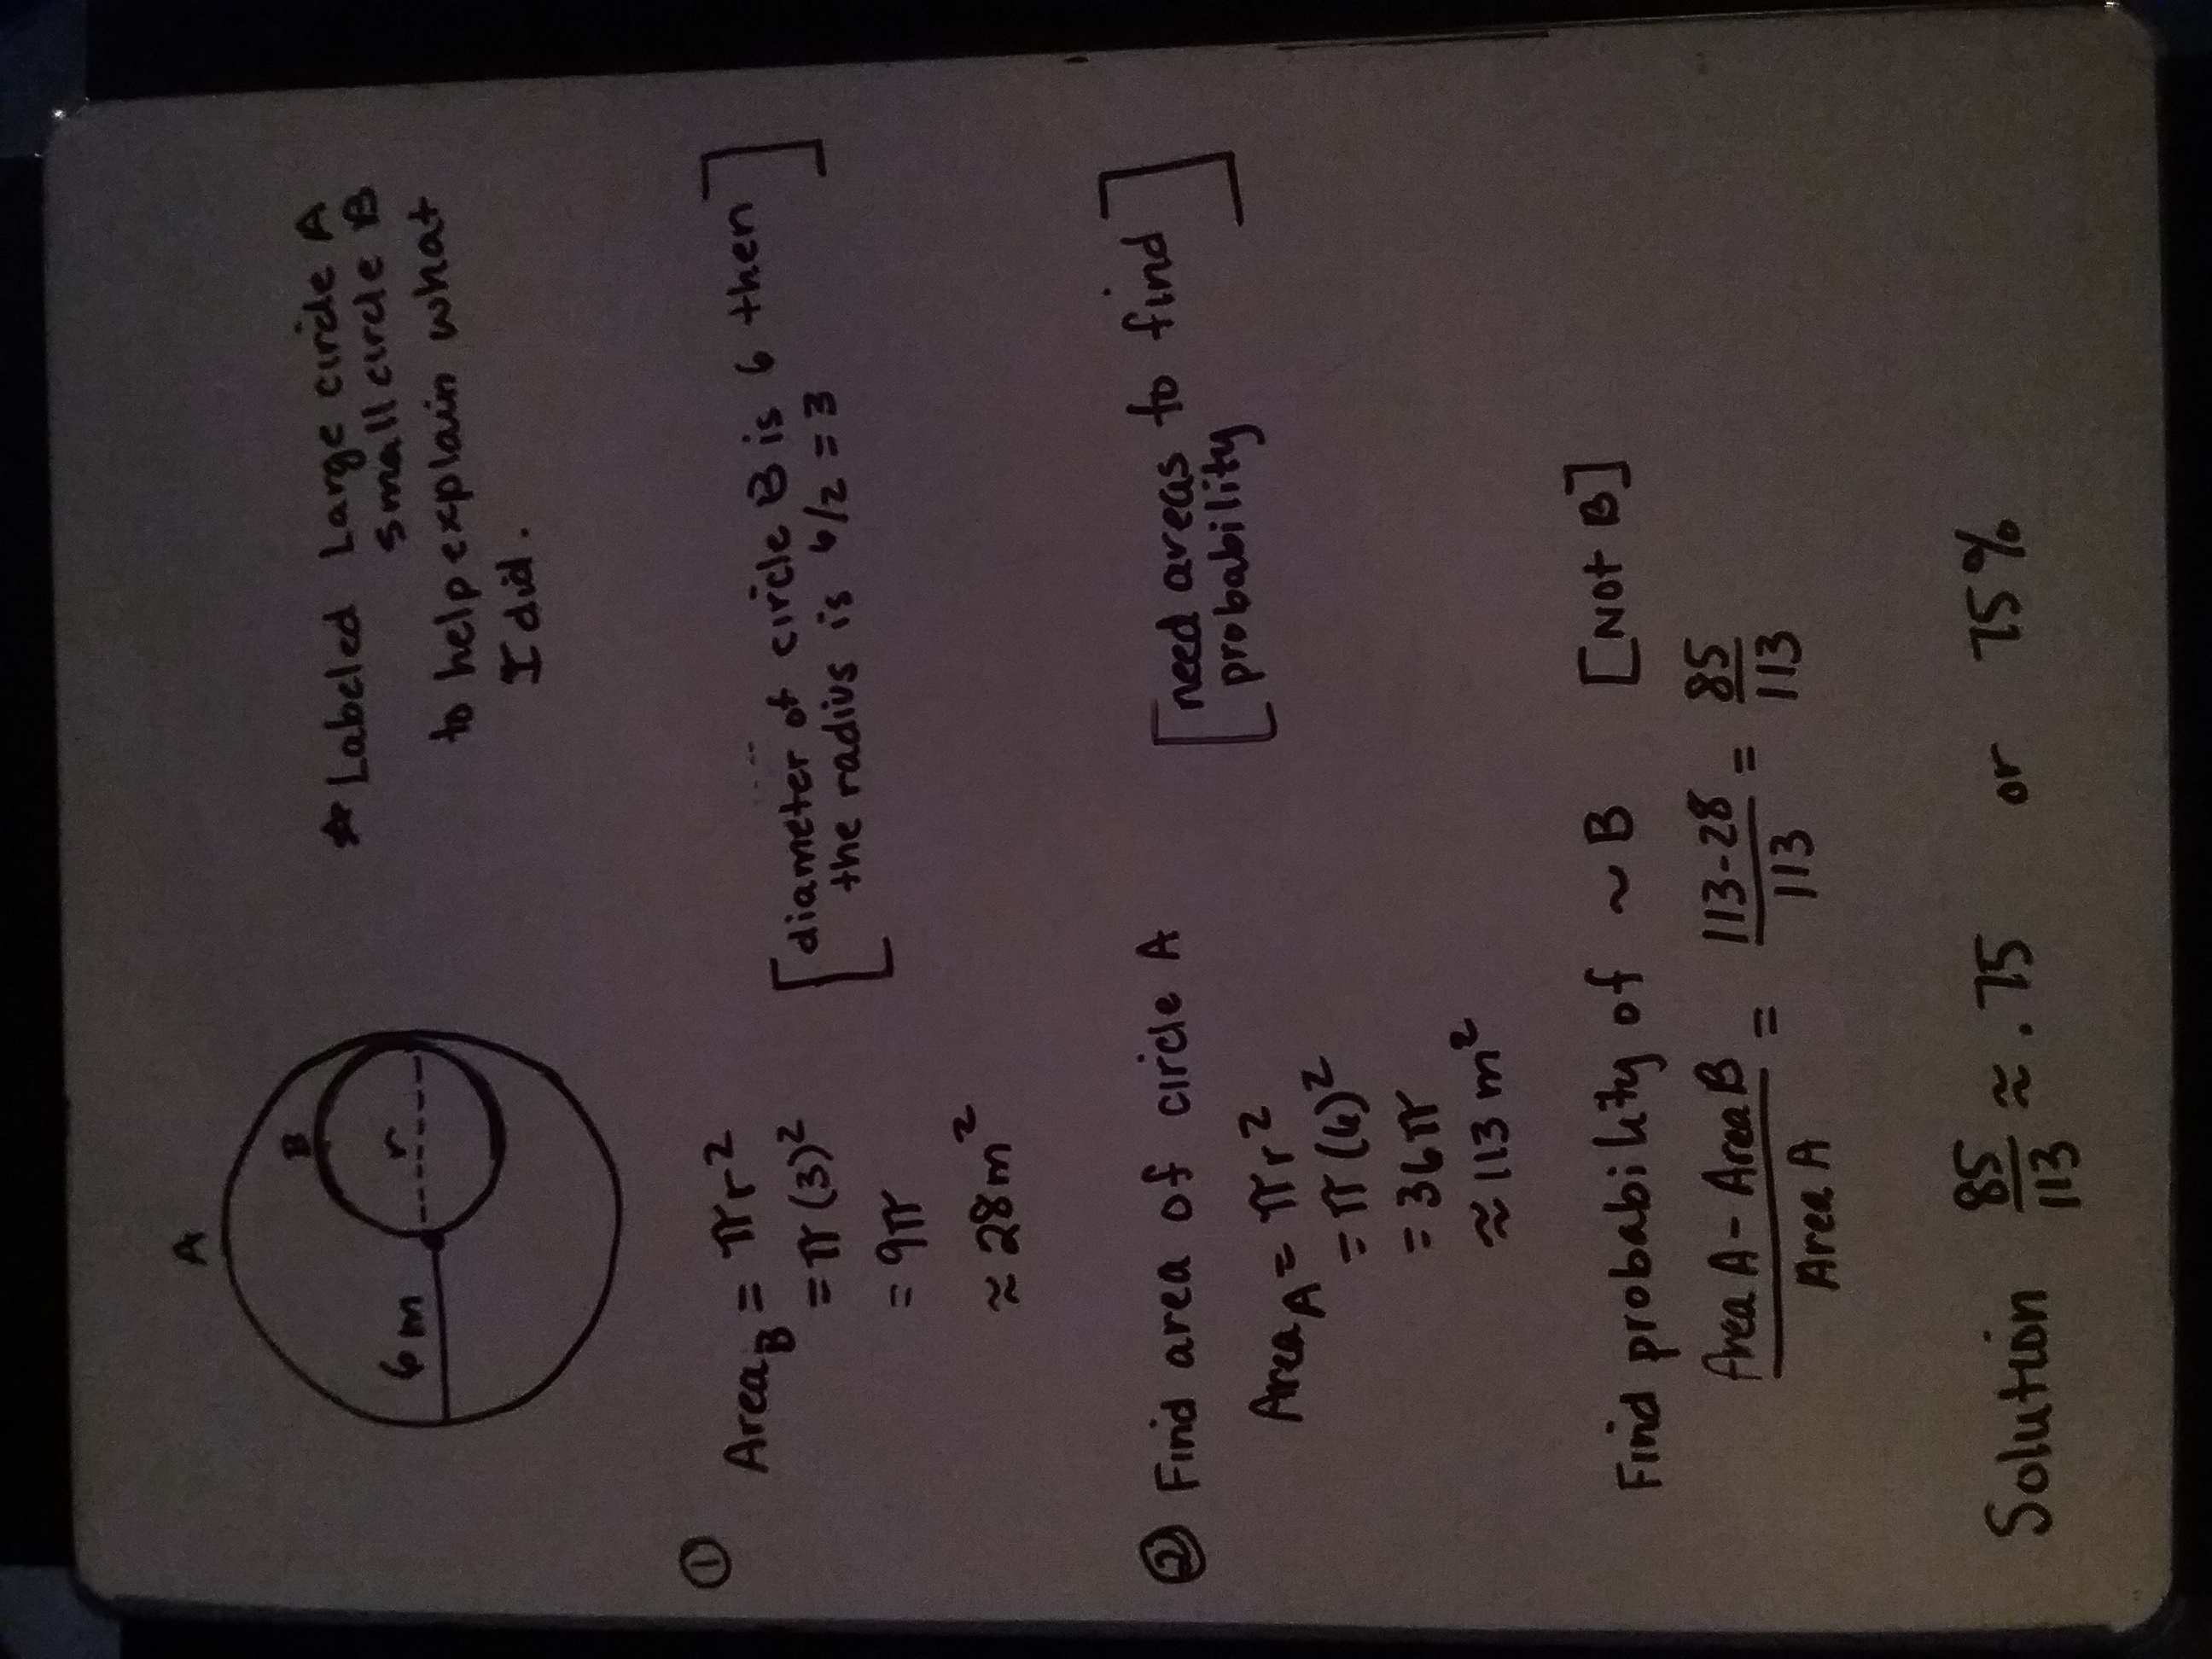 A
B
r
6 m
* Labeled Large circle A
small circle B
to help explain what
I did.
① Area_B = πr²
= π(3)²
= 9π
≈ 28 m²
[diameter of circle B is 6 then
the radius is 6/2 = 3]
② Find area of circle A
[need areas to find
probability]
Area_A = πr²
= π(6)²
= 36π
≈ 113 m²
Find probability of ~ B [Not B]
(Area A - Area B)/(Area A) = (113-28)/113 = 85/113
Solution 85/113 ≈ .75 or 75%